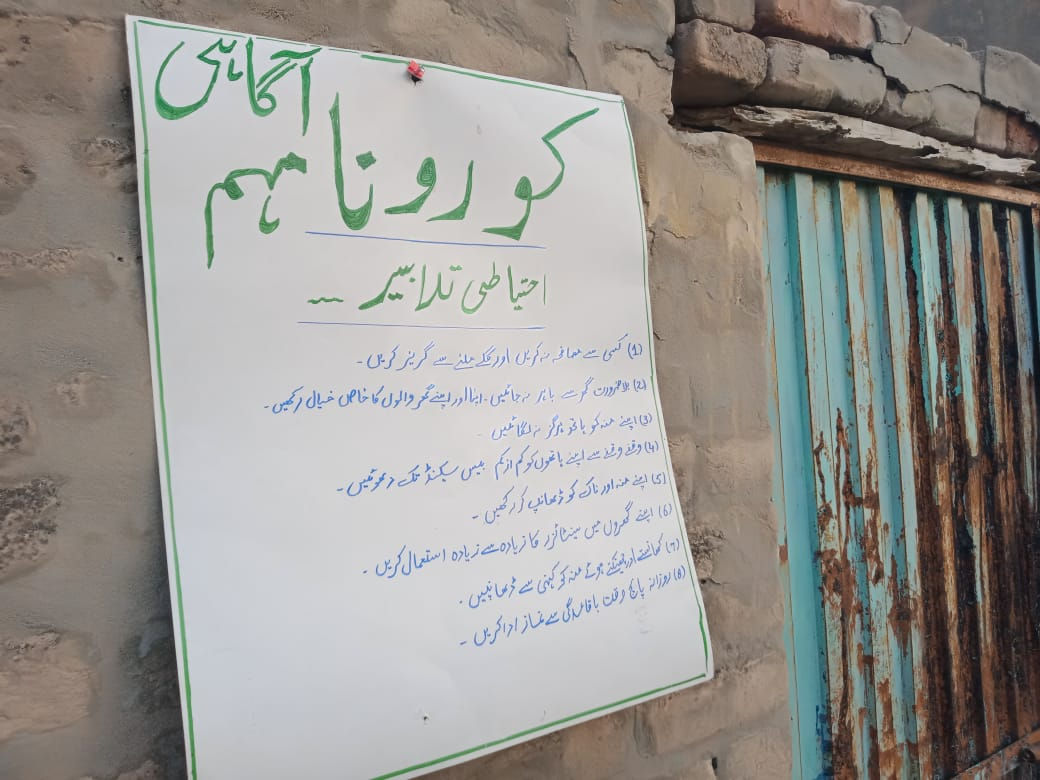 کورونا آگاہی
مہم
احتیاطی تدابیر ---
(1) کسی سے مصافحہ نہ کریں اور گلے ملنے سے گریز کریں۔
(2) بلا ضرورت گھر سے باہر نہ جائیں۔ اپنا اور اپنے گھر والوں کا خاص خیال رکھیں۔
(3) اپنے منہ کو ہاتھ ہرگز نہ لگائیں۔
(4) وقفے وقفے سے اپنے ہاتھوں کو کم از کم بیس سیکنڈ تک دھوئیں۔
(5) اپنے منہ اور ناک کو ڈھانپ کر رکھیں۔
(6) اپنے گھروں میں سینٹائزر کا زیادہ سے زیادہ استعمال کریں۔
(7) کھانستے اور چھینکتے ہوئے منہ کو کہنی سے ڈھانپیں۔
(8) روزانہ پانچ وقت باقاعدگی سے نماز ادا کریں۔